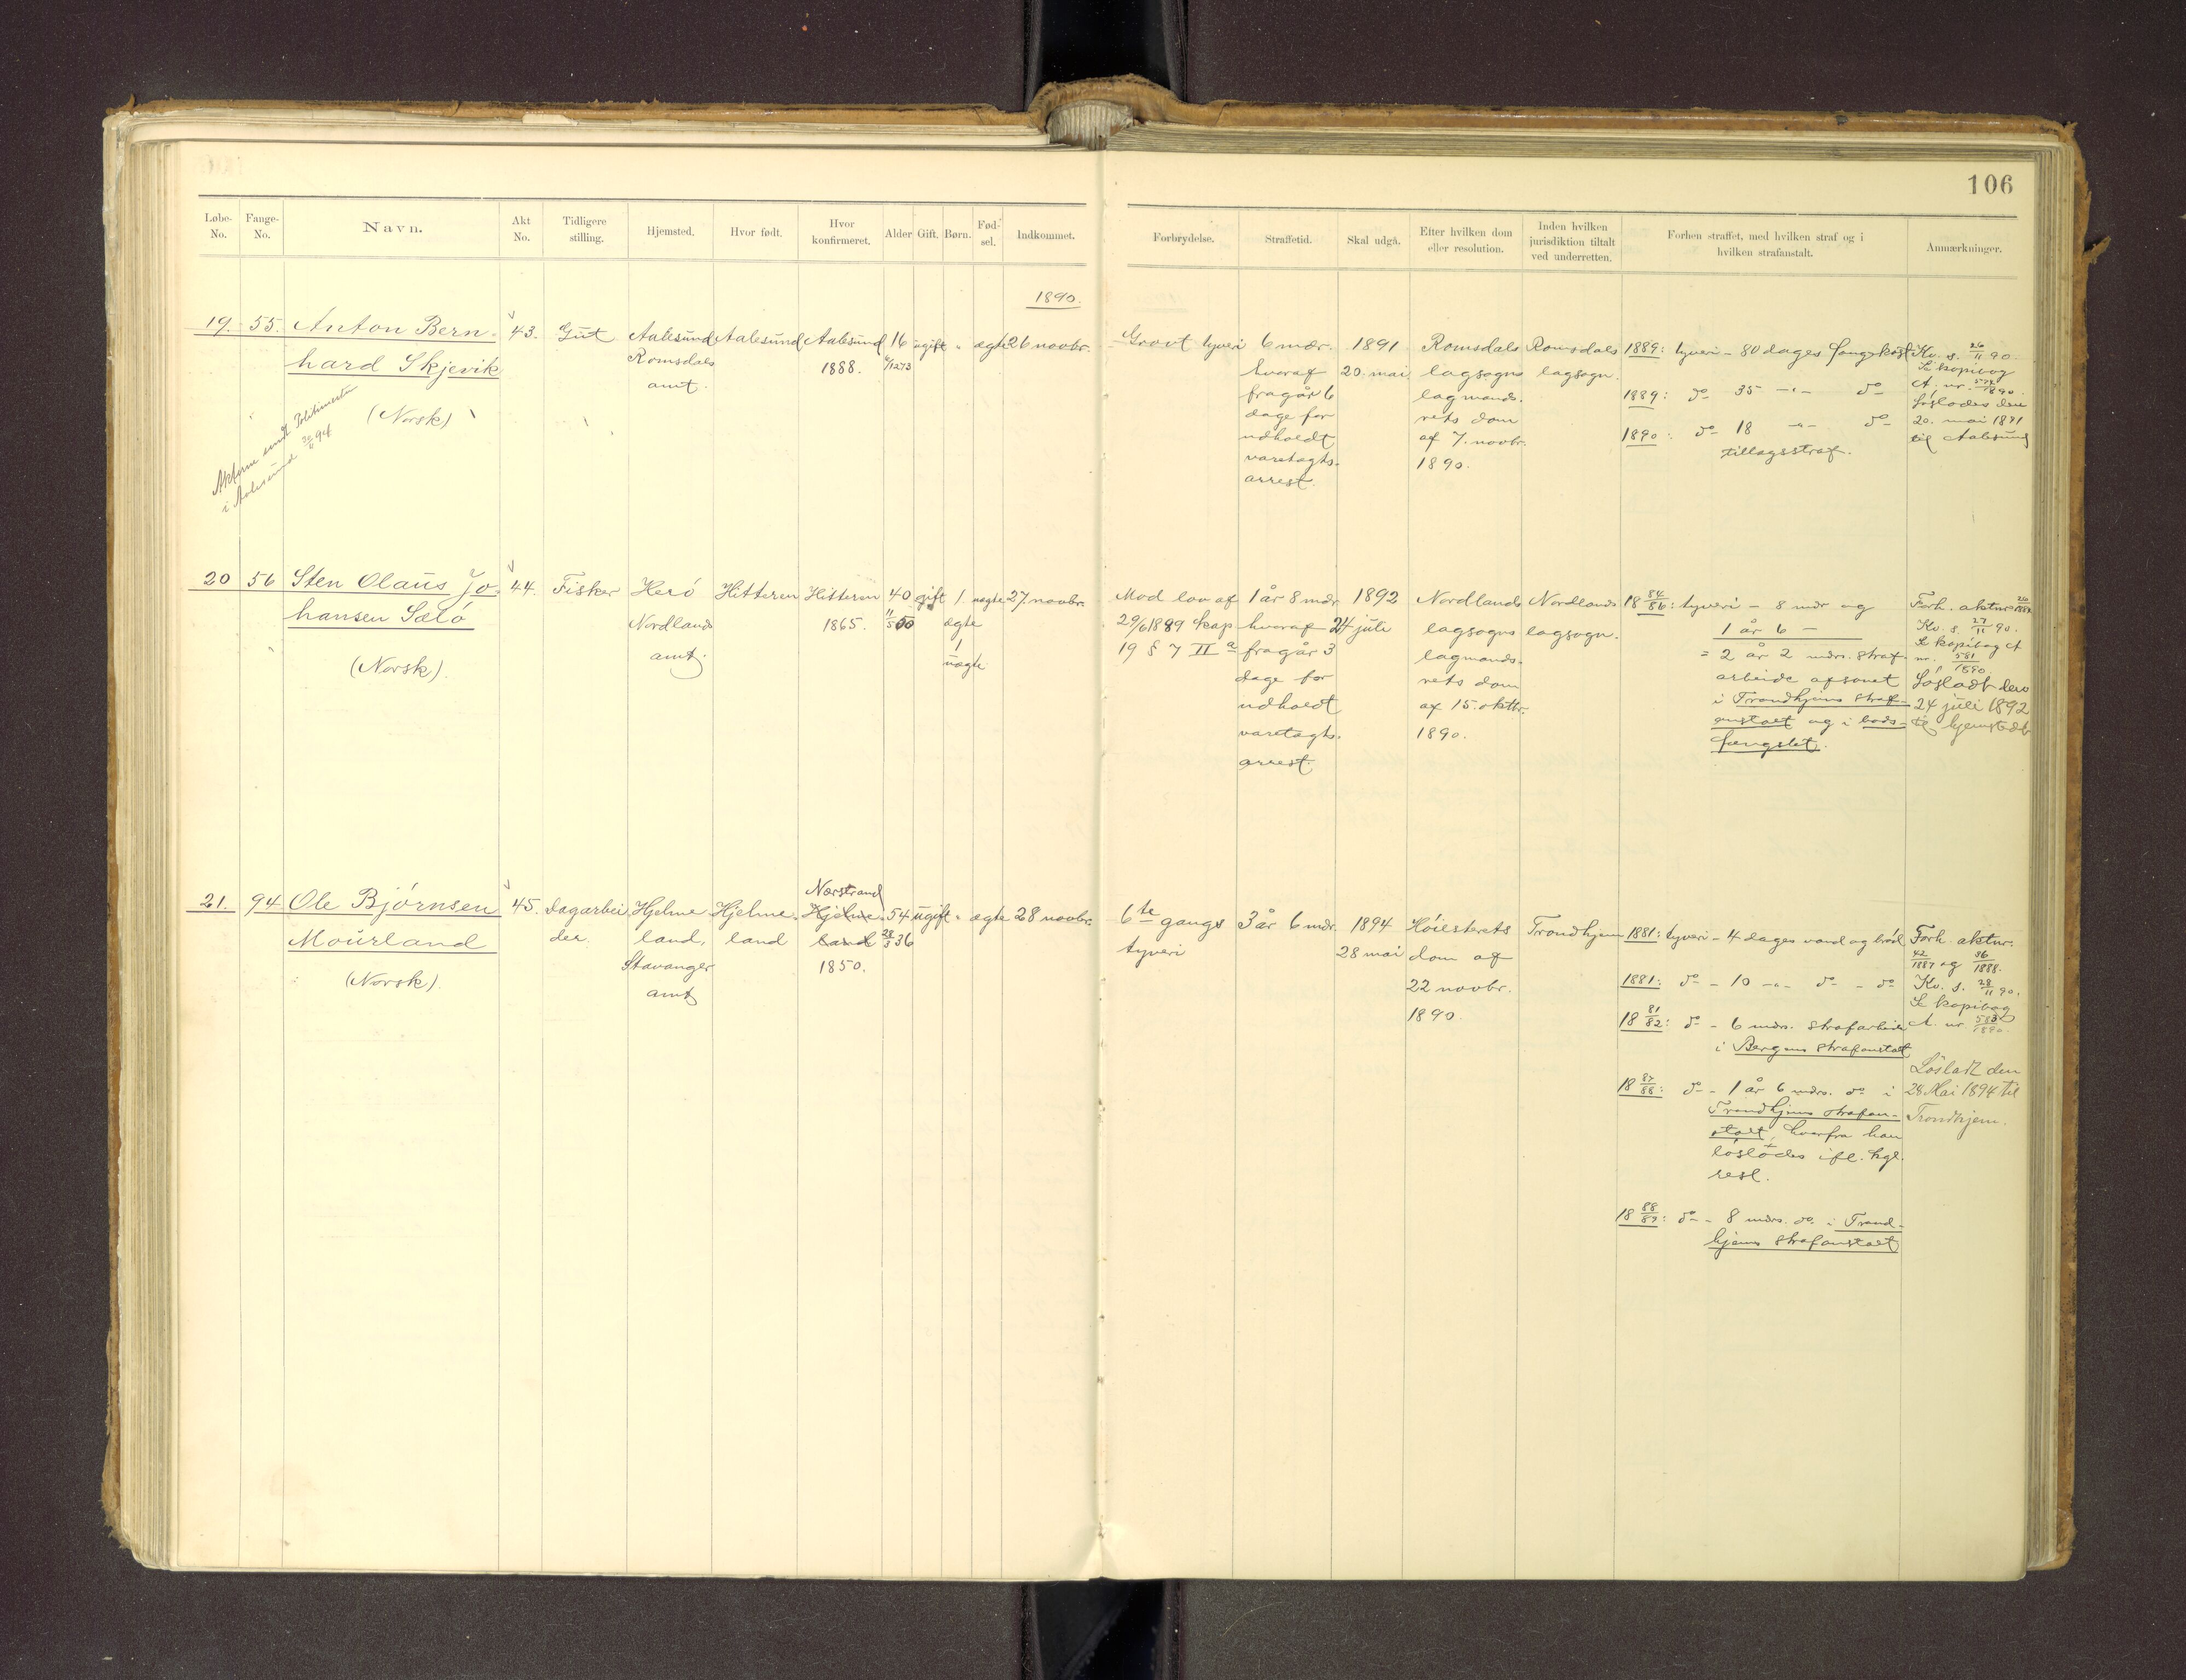 106
Løbe-No. Fange-No. Navn. Akt No. Tidligere stilling. Hjemsted. Hvor født. Hvor konfirmeret. Alder Gift. Børn. Fød-sel. Indkommet.
Forbrydelse. Straffetid. Skal udgå. Efter hvilken dom eller resolution. Inden hvilken jurisdiktion tiltalt ved underretten. Forhen straffet, med hvilken straf og i hvilken strafanstalt. Anmærkninger.
1890.
19. 55. Anton Bern-
hard Skjevik
(Norsk)
Akterne sendt Politimester
i Aalesund 94
43.
Gut
Aalesund
Romsdals
amt.
Aalesund
Aalesund
1888.
16
ugift
"
ægte
26 novbr.
Grovt tyveri
6 mdr.
hvoraf
fragår 6
dage for
udholdt
varetægts-
arrest.
1891
20. mai.
Romsdals
lagsogns
lagmands-
rets dom
af 7. novbr.
1890.
Romsdals
lagsogn.
1889: tyveri - 80 dages fangekost
1889: do 35 -"- do
1890: do 18 -"- do
tillægsstraf.
Kv. s. 26/11 90.
Se kopibog
A. nr.
Løslodes den
20. mai 1891
til Aalesund
20 56 Sten Olaus Jo-
hansen Sælø
(Norsk).
44.
Fisker
Herø
Nordlands
amt.
Hitteren
Hitteren
1865.
40
11/5 50
gift
1
ægte
1
uægte
uægte
27. novbr.
Mod lov af
29/6 1889 kap
19 § 7 II a
1 år 8 mdr
hvoraf
fragår 3
dage for
udholdt
varetægts-
arrest.
1892
24 juli
Nordlands
lagsogns
lagmands-
rets dom
af 15. oktbr.
1890.
Nordlands
lagsogn.
18 84/86: tyveri - 8 mdr og
1 år 6 -
= 2 år 2 mdrs. straf-
arbeide afsonet
i Trondhjems straf-
anstalt og i bods-
fængslet.
Forh. aktnr.
Kv. s. 27/11 90.
Se kopibog A
nr. 581/1890
Løsladt den
24 juli 1892
til hjemstedet
21. 94 Ole Bjørnsen
Mourland
(Norsk).
45.
Dagarbei
der.
Hjelme
land,
Stavanger
amt
Hjelme-
land
Nærstrand
Hjelme-
land
1850.
54
28/3 36
ugift
"
ægte
28 novbr.
6te gangs
tyveri
3 år 6 mdr.
1894
28 mai
Høiesterets
dom af
22 novbr.
1890.
Trondhjem
1881: tyveri - 4 dages vand og brød
1881: do - 10 -"- do - do
18 81/82: do - 6 mdrs. strafarbeide
i Bergens strafanstalt
18 87/88: do - 1 år 6 mdrs. do i
Trondhjems strafan-
stalt, hvorfra han
løslodes ifl. kgl.
resl.
18 88/89: do - 8 mdrs. do. i Trond-
hjems strafanstalt
Forh. aktnr.
42/1887 og 36/1888.
Kv. s. 28/11 90.
Se kopibog
A. nr 583/1890.
Løsladt den
28 Mai 1894 til
Trondhjem.